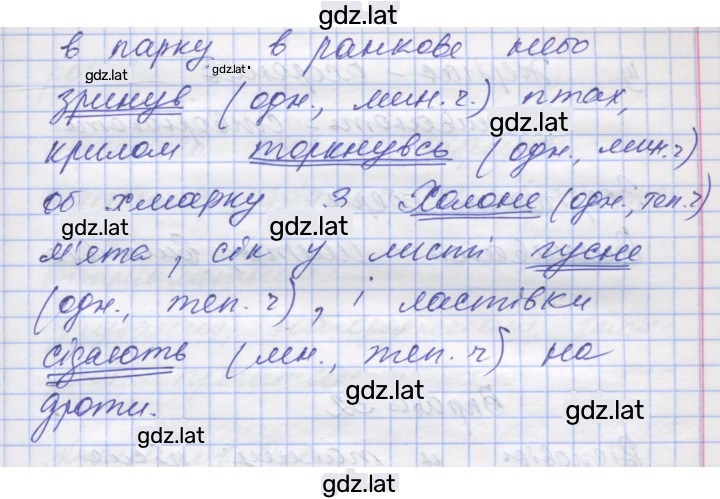 gdz.lat
в парку в ранкове небо
gdz.lat gdz.lat
зринув (одн., мин.ч.) птах,
gdz.lat
крилом торкнувсь (одн., мин.ч)
об хмарку 3 Холоне (одн., теп.ч)
gdz.lat gdz.lat
м'ята, сік у листі гусне
(одн., теп.ч), і ластівки
gdz.lat
сідають (мн., теп.ч) на
gdz.lat gdz.lat
дроти.
gdz.lat
gdz.lat